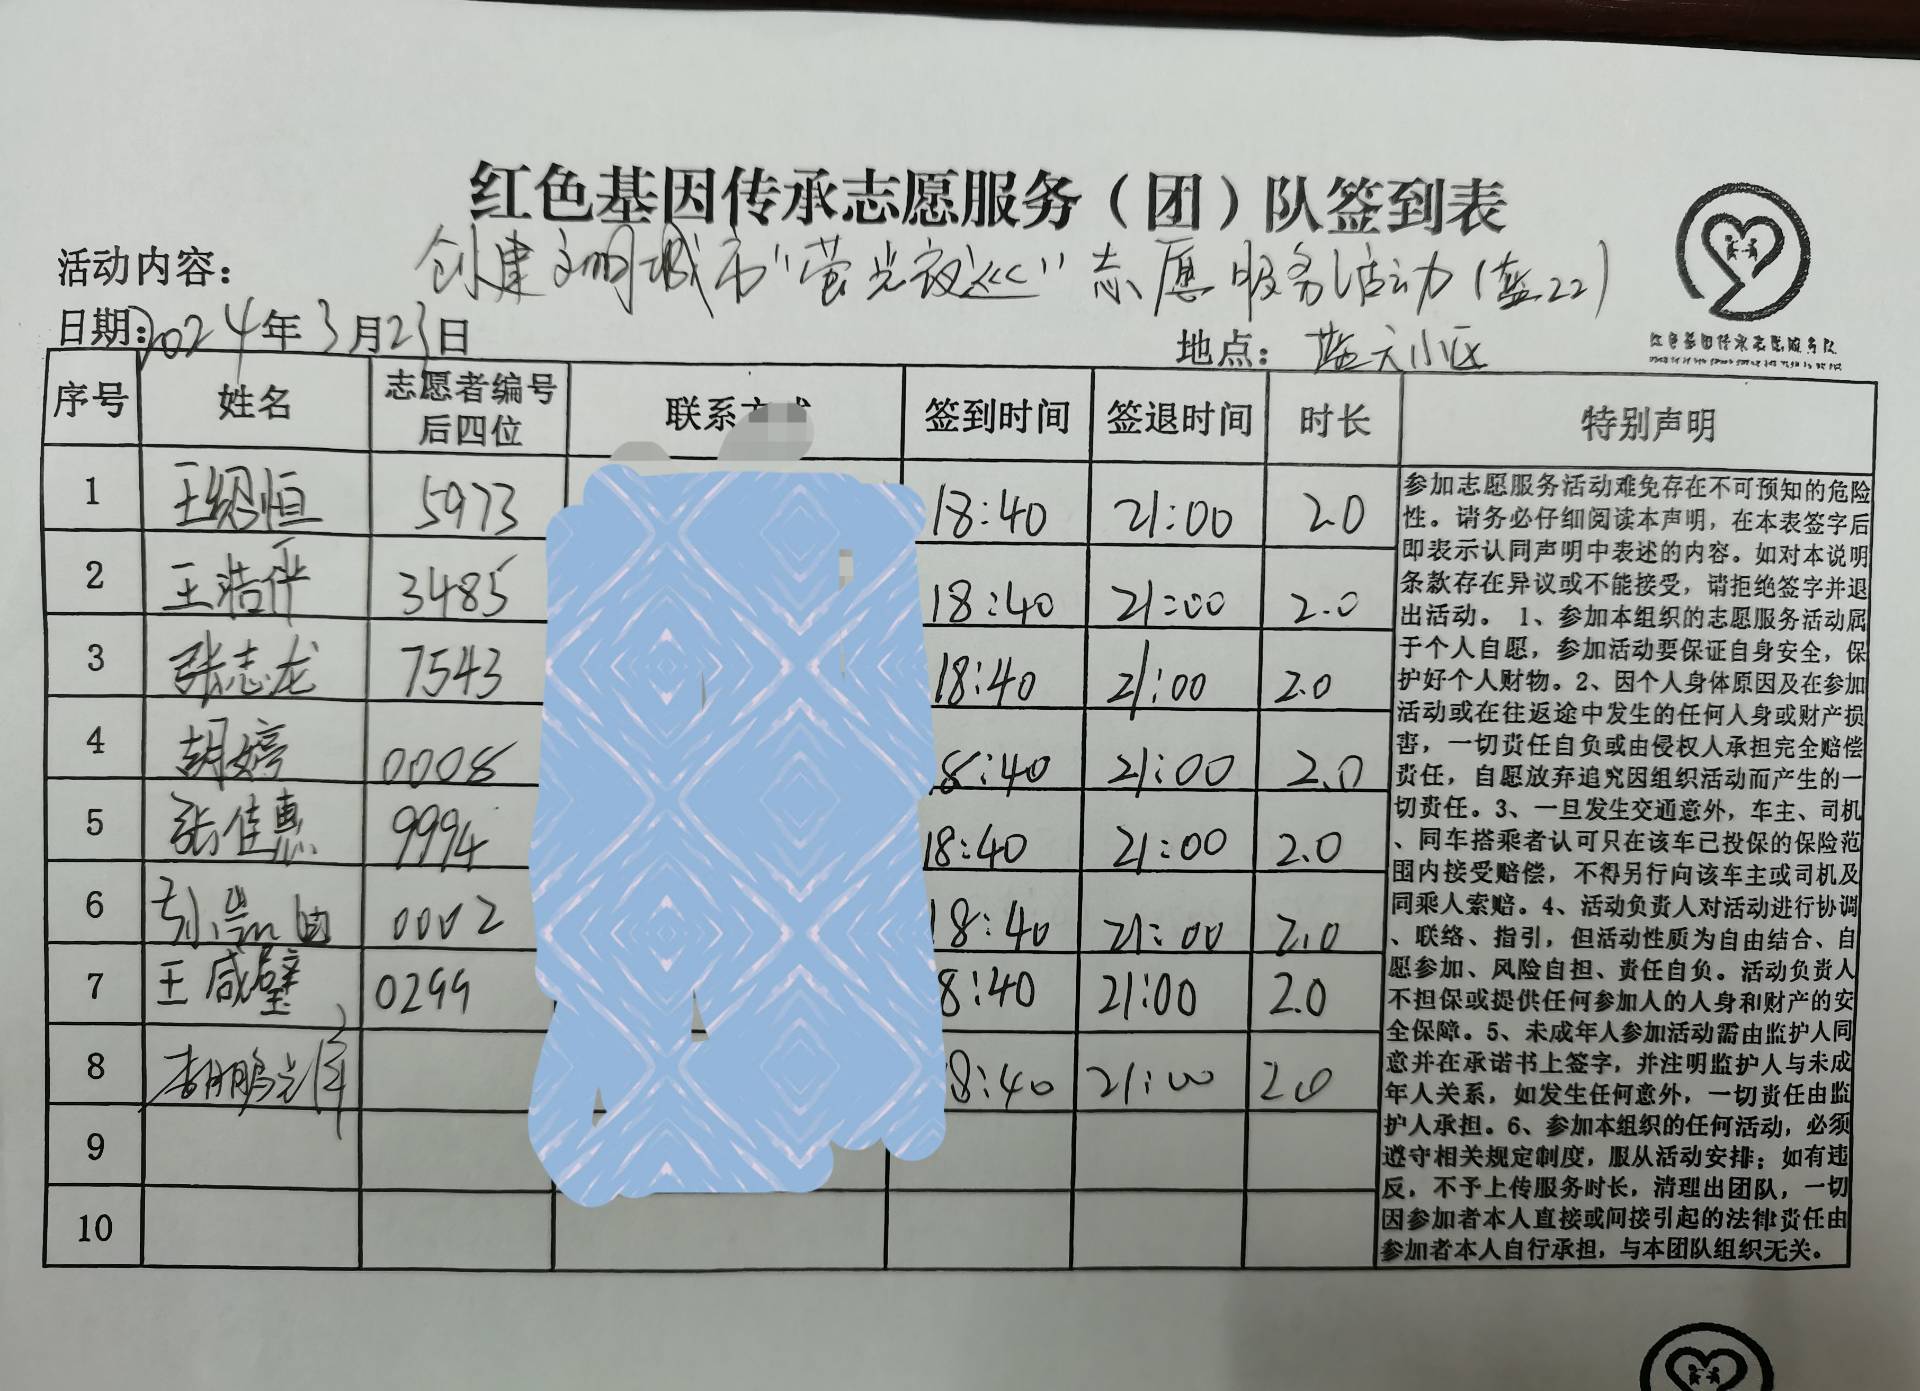 红色基因传承志愿服务（团）队签到表
活动内容： 创建文明城市“萤光夜巡”志愿服务活动（蓝22）
日期：2024年3月23日 地点： 蓝天小区
红色基因传承志愿服务队
序号 姓名 志愿者编号后四位 联系方式 签到时间 签退时间 时长 特别声明
1 王绍恒 5973 18:40 21:00 2.0
2 王浩 3485 18:40 21:00 2.0
3 张志龙 7543 18:40 21:00 2.0
4 胡婷 0008 8:40 21:00 2.0
5 张佳惠 9994 18:40 21:00 2.0
6 0002 18:40 21:00 2.0
7 王咸璧 0299 8:40 21:00 2.0
8 8:40 21:00 2.0
9
10
参加志愿服务活动难免存在不可预知的危险
性。请务必仔细阅读本声明，在本表签字后
即表示认同声明中表述的内容。如对本说明
条款存在异议或不能接受，请拒绝签字并退
出活动。 1、参加本组织的志愿服务活动属
于个人自愿，参加活动要保证自身安全，保
护好个人财物。2、因个人身体原因及在参加
活动或在往返途中发生的任何人身或财产损
害，一切责任自负或由侵权人承担完全赔偿
责任，自愿放弃追究因组织活动而产生的一
切责任。3、一旦发生交通意外，车主、司机
、同车搭乘者认可只在该车已投保的保险范
围内接受赔偿，不得另行向该车主或司机及
同乘人索赔。4、活动负责人对活动进行协调
、联络、指引，但活动性质为自由结合、自
愿参加、风险自担、责任自负。活动负责人
不担保或提供任何参加人的人身和财产的安
全保障。5、未成年人参加活动需由监护人同
意并在承诺书上签字，并注明监护人与未成
年人关系，如发生任何意外，一切责任由监
护人承担。6、参加本组织的任何活动，必须
遵守相关规定制度，服从活动安排；如有违
反，不予上传服务时长，清理出团队，一切
因参加者本人直接或间接引起的法律责任由
参加者本人自行承担，与本团队组织无关。